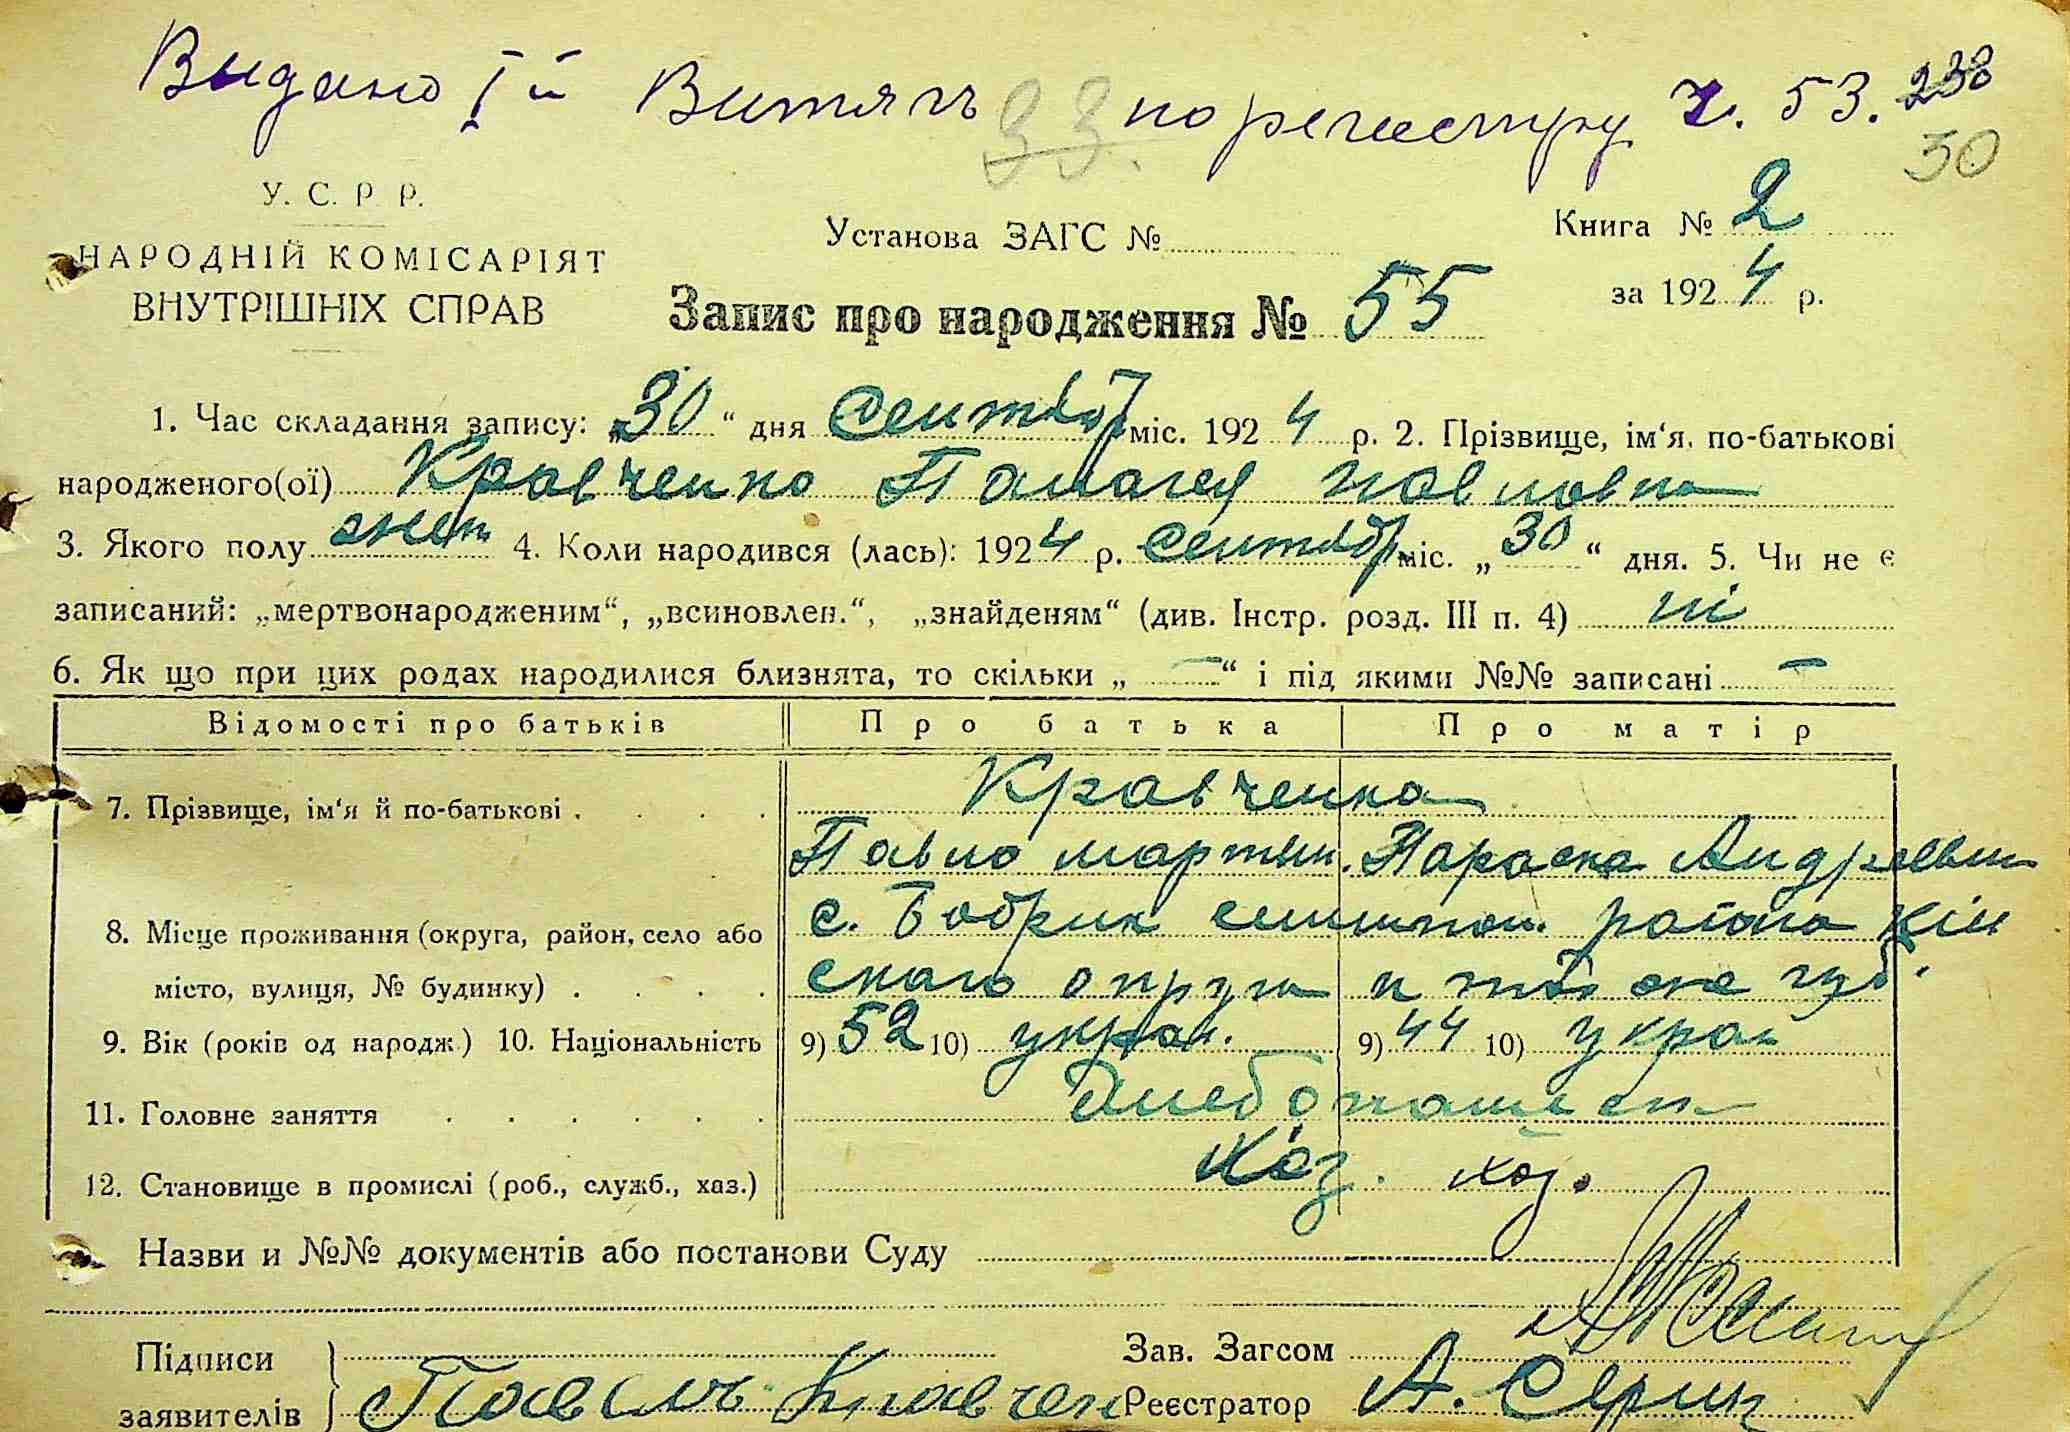 Видано І й Витягъ по регестру Ч. 53. 238
33.
30
У. С. Р. Р.
НАРОДНІЙ КОМІСАРІЯТ
ВНУТРІШНІХ СПРАВ
Установа ЗАГС №
Книга № 2
за 1924 р.
Запис про народження № 55
1. Час складання запису: „30“ дня Сентябр міс. 1924 р. 2. Прізвище, ім‘я, по-батькові
народженого(ої) Кравченко Палагея Павловна
3. Якого полу жен. 4. Коли народився (лась): 1924 р. Сентябр міс. „30“ дня. 5. Чи не є
записаний: „мертвонародженим“, „всиновлен.“, „знайденям“ (див. Інстр. розд. III п. 4) ні
6. Як що при цих родах народилися близнята, то скільки „ — “ і під якими №№ записані —
Відомості про батьків Про батька Про матір
Кравченко
7. Прізвище, ім‘я й по-батькові
Павло Мартын. Параска Андреевн
8. Місце проживання (округа, район, село або с. Бобрик района Ки
місто, вулиця, № будинку) скаго округа и той же губ.
9. Вік (років од народж.) 10. Національність 9) 52 10) украи. 9) 44 10) украи
11. Головне заняття Хлебопашест
12. Становище в промислі (роб., служб., хаз.) Хоз. хоз.
Назви и №№ документів або постанови Суду
Підписи
заявителів
Зав. Загсом
Павель Кравчен Реєстратор А.